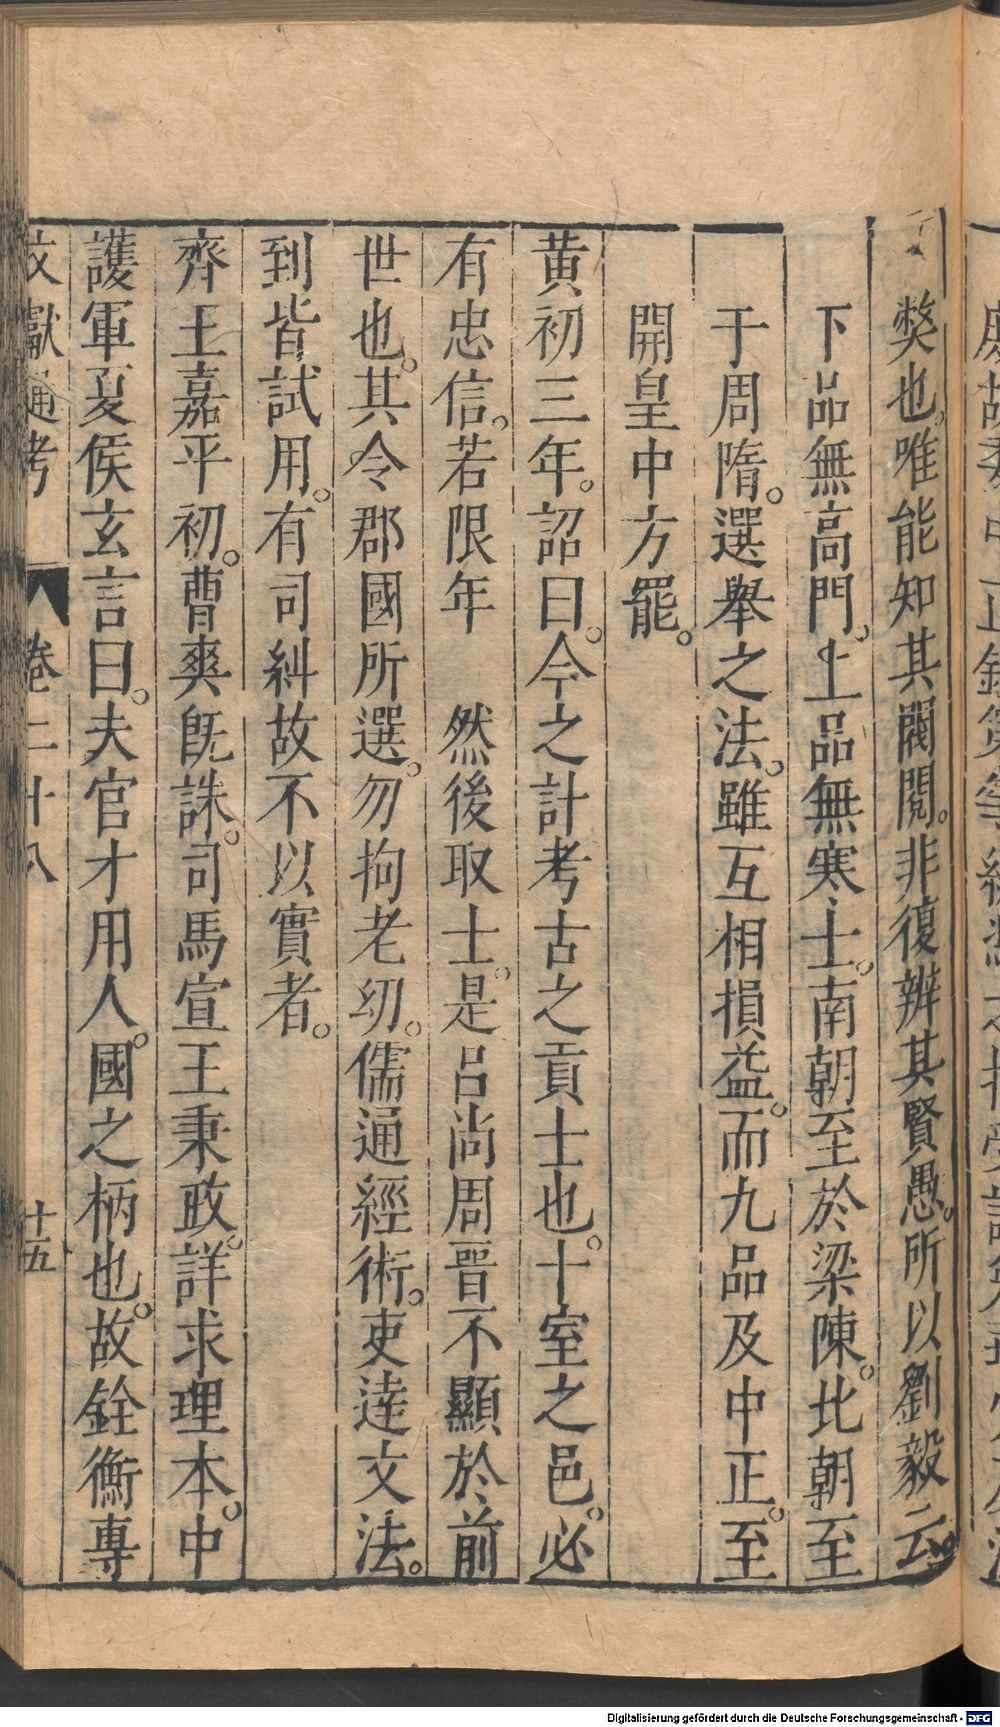 獘也。唯能知其閥閱。非復辨其賢愚。所以劉毅云
下品無高門。上品無寒士。南朝至於梁陳。北朝至
于周隋。選舉之法。雖互相損益。而九品及中正。至
開皇中方罷。
黃初三年。詔曰。今之計考古之貢士也。十室之邑。必
有忠信。若限年　然後取士。是呂尚周晉不顯於前
世也。其令郡國所選。勿拘老幼。儒通經術。吏達文法。
到皆試用。有司糾故不以實者。
齊王嘉平初。曹爽旣誅。司馬宣王秉政。詳求理本。中
護軍夏侯玄言曰。夫官才用人。國之柄也。故銓衡專
文獻通考　卷二十八　十五
Digitalisierung gefördert durch die Deutsche Forschungsgemeinschaft - DFG